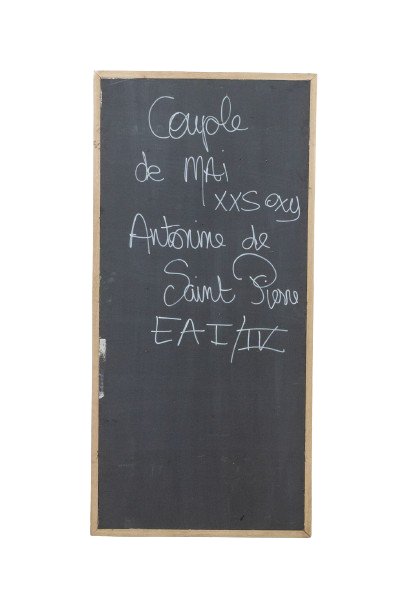 Couple
de MAi
XXSexy
Antonine de
Saint Pierre
EA I/IV